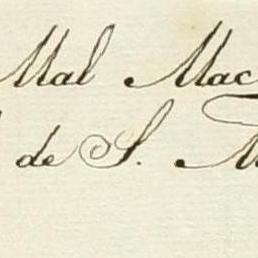 Mal Mac
de S. M